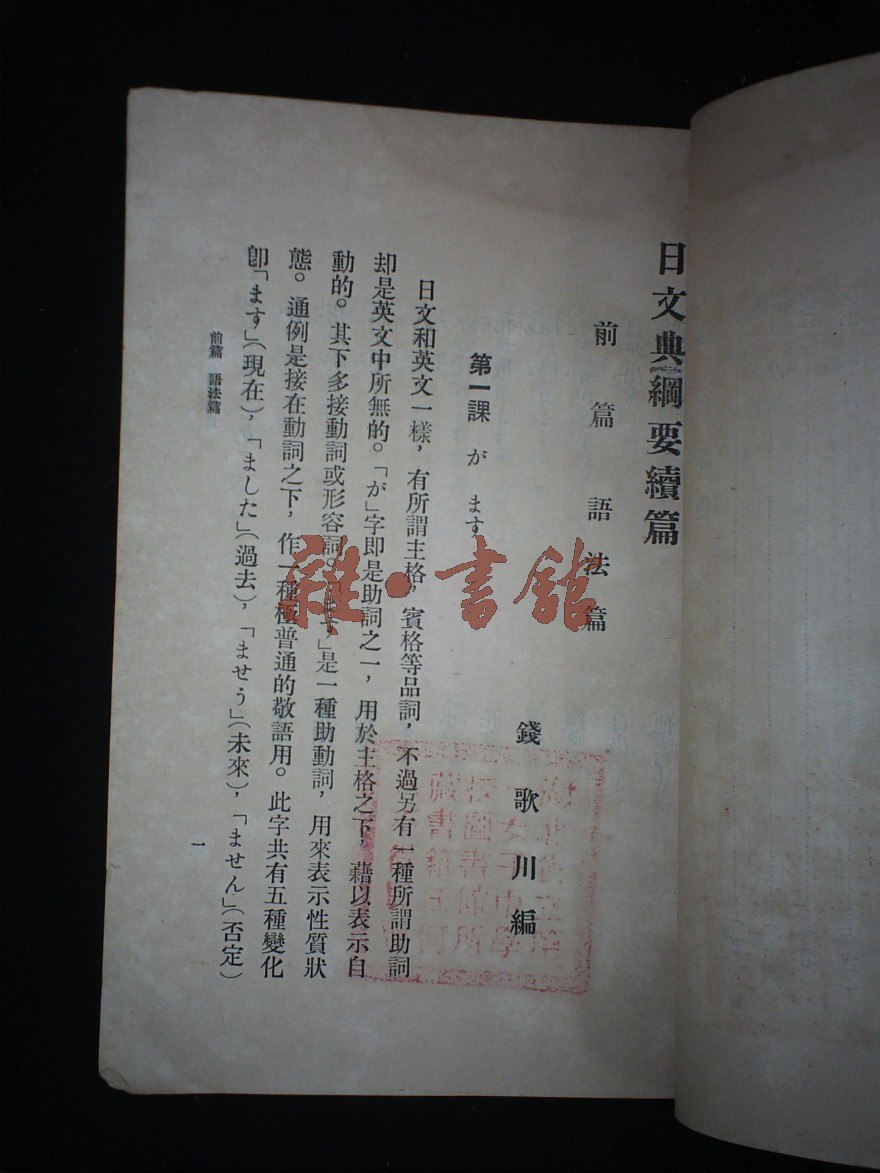 日文典綱要續篇
前篇 語法篇
錢歌川編
第一課 が ます
日文和英文一樣，有所謂主格，賓格等品詞，不過另有一種所謂助詞
却是英文中所無的。「が」字即是助詞之一，用於主格之下，藉以表示自
動的。其下多接動詞或形容詞。「ます」是一種助動詞，用來表示性質狀
態。通例是接在動詞之下，作一種極普通的敬語用。此字共有五種變化
卽「ます」(現在)，「ました」(過去)，「ませう」(未來)，「ません」(否定)
前篇 語法篇
一
雜·書館